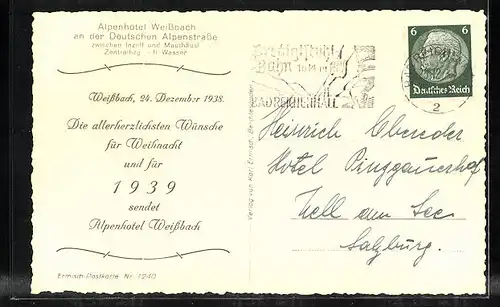 Alpenhotel Weißbach
an der Deutschen Alpenstraße
zwischen Inzell und Mauthäusl
Weißbach, 24. Dezember 1938.
Die allerherzlichsten Wünsche
für Weihnacht
und für
1939
sendet
Alpenhotel Weißbach
Ermisch-Postkarte Nr.
Verlag von Karl Ermisch,
Predigtstuhl
Bahn 1614 m
BAD REICHENHALL
6 6
Deutsches Reich
2
Heinrich
Hotel Pinzgauerhof
Zell am See
Salzburg.